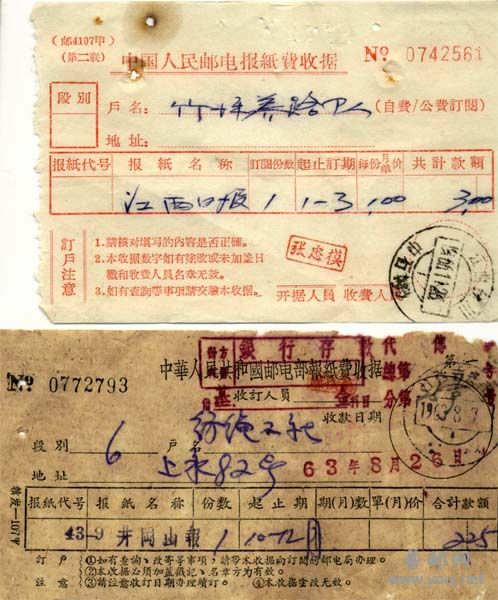 (邮4107甲)
(第二联)
中国人民邮电报紙費收据
№ 0742561
段別
戶名: 竹坪养路工人 (自費/公費訂閱)
地址:
报紙代号 报紙名称 訂閱份数 起止訂期 每份月单价 共計款額
江西日报 1 1-3 1,00 3,00
訂戶注意
1.請核对填写的內容是否正確。
2.本收据数字如有涂改或未加蓋日
戳和收費人員名章无效。
3.如有查詢等事項請交驗本收据。
张忠模
开据人員 收費人員
№ 0772793
銀行存款
中華人民共和國邮电部報紙費收据
收訂人員
收款日期
段別 6 戶名
地址 上米82号
63年8月26日
1963.8
报紙代号 报紙名称 份数 起止期 期(月)数 單(月)价 合計款額
43-9 井岡山報 1 10-12 225
訂戶注意
①如有查詢、改寄等事項,請帶本收据向訂閱的邮电局办理。
②本收据必須加蓋戳記、名章方为有效。
③請注意收訂日期办理續訂。 ④本收据塗改无效。
www.youj.net